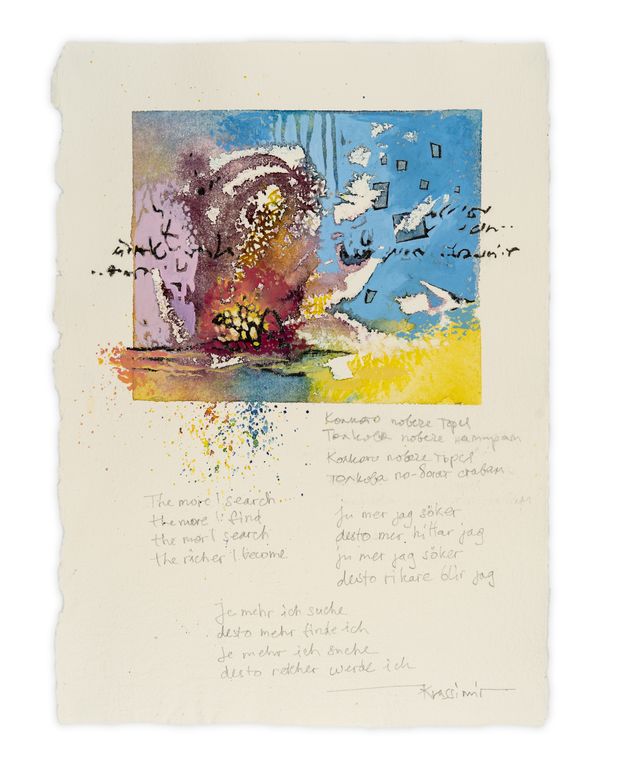 Колкото повече търся
Толкова повече намирам
Колкото повече търся
толкова по-богат ставам
The more I search
the more I find
the mor I search
the richer I become
ju mer jag söker
desto mer hittar jag
ju mer jag söker
desto rikare blir jag
je mehr ich suche
desto mehr finde ich
je mehr ich suche
desto reicher werde ich
Krassimir